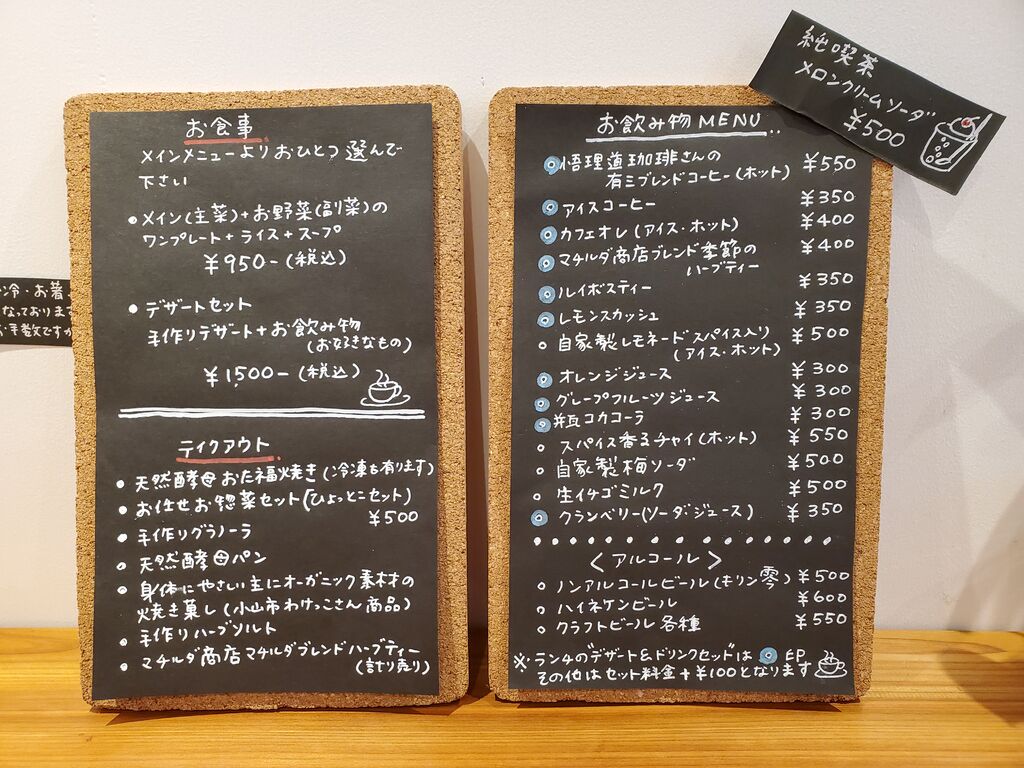 純喫茶
メロンクリームソーダ
¥500
お食事
メインメニューよりおひとつ選んで
下さい
●メイン(主菜)+お野菜(副菜)の
ワンプレート+ライス+スープ
¥950-(税込)
●デザートセット
手作りデザート+お飲み物
(お好きなもの)
¥1500-(税込)
テイクアウト
●天然酵母おた福焼き(冷凍も有ります)
●お任せお惣菜セット(ひょっとこセット)
¥500
●手作りグラノーラ
●天然酵母パン
●身体にやさしい主にオーガニック素材の
焼き菓し(小山市わけっこさん商品)
●手作りハーブソルト
●マチルダ商店マチルダブレンドハーブティー
(計り売り)
お飲み物MENU
悟理道珈琲さんの
有ミブレンドコーヒー(ホット) ¥550
アイスコーヒー ¥350
カフェオレ(アイス・ホット) ¥400
マチルダ商店ブレンド季節の ¥400
ハーブティー
ルイボスティー ¥350
レモンスカッシュ ¥350
自家製レモネードスパイス入り ¥500
(アイス・ホット)
オレンジジュース ¥300
グレープフルーツジュース ¥300
瓶コカコーラ ¥300
スパイス香るチャイ(ホット) ¥550
自家製梅ソーダ ¥500
生イチゴミルク ¥500
クランベリー(ソーダジュース) ¥350
<アルコール>
ノンアルコールビール(キリン零) ¥500
ハイネケンビール ¥600
クラフトビール各種 ¥550
※ランチのデザート&ドリンクセットは EP
その他はセット料金+¥100となります